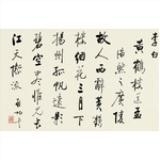 李白
黃鶴樓送孟
浩然之廣陵
故人西辭黃鶴
樓烟花三月下
揚州孤帆遠影
碧空盡惟見長
江天際流 啓功